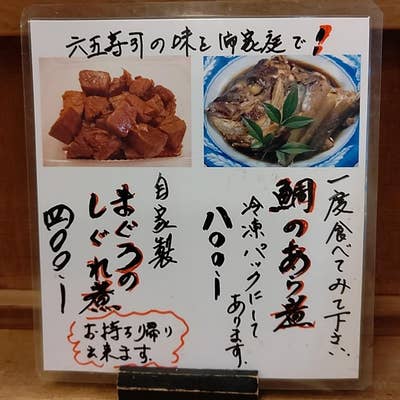 六五寿司の味を御家庭で!
一度食べてみて下さい、
鯛のあら煮
冷凍パックにして
あります。
八〇〇ー
自家製
まぐろの
しぐれ煮
四〇〇ー
お持ち帰り
出来ます。